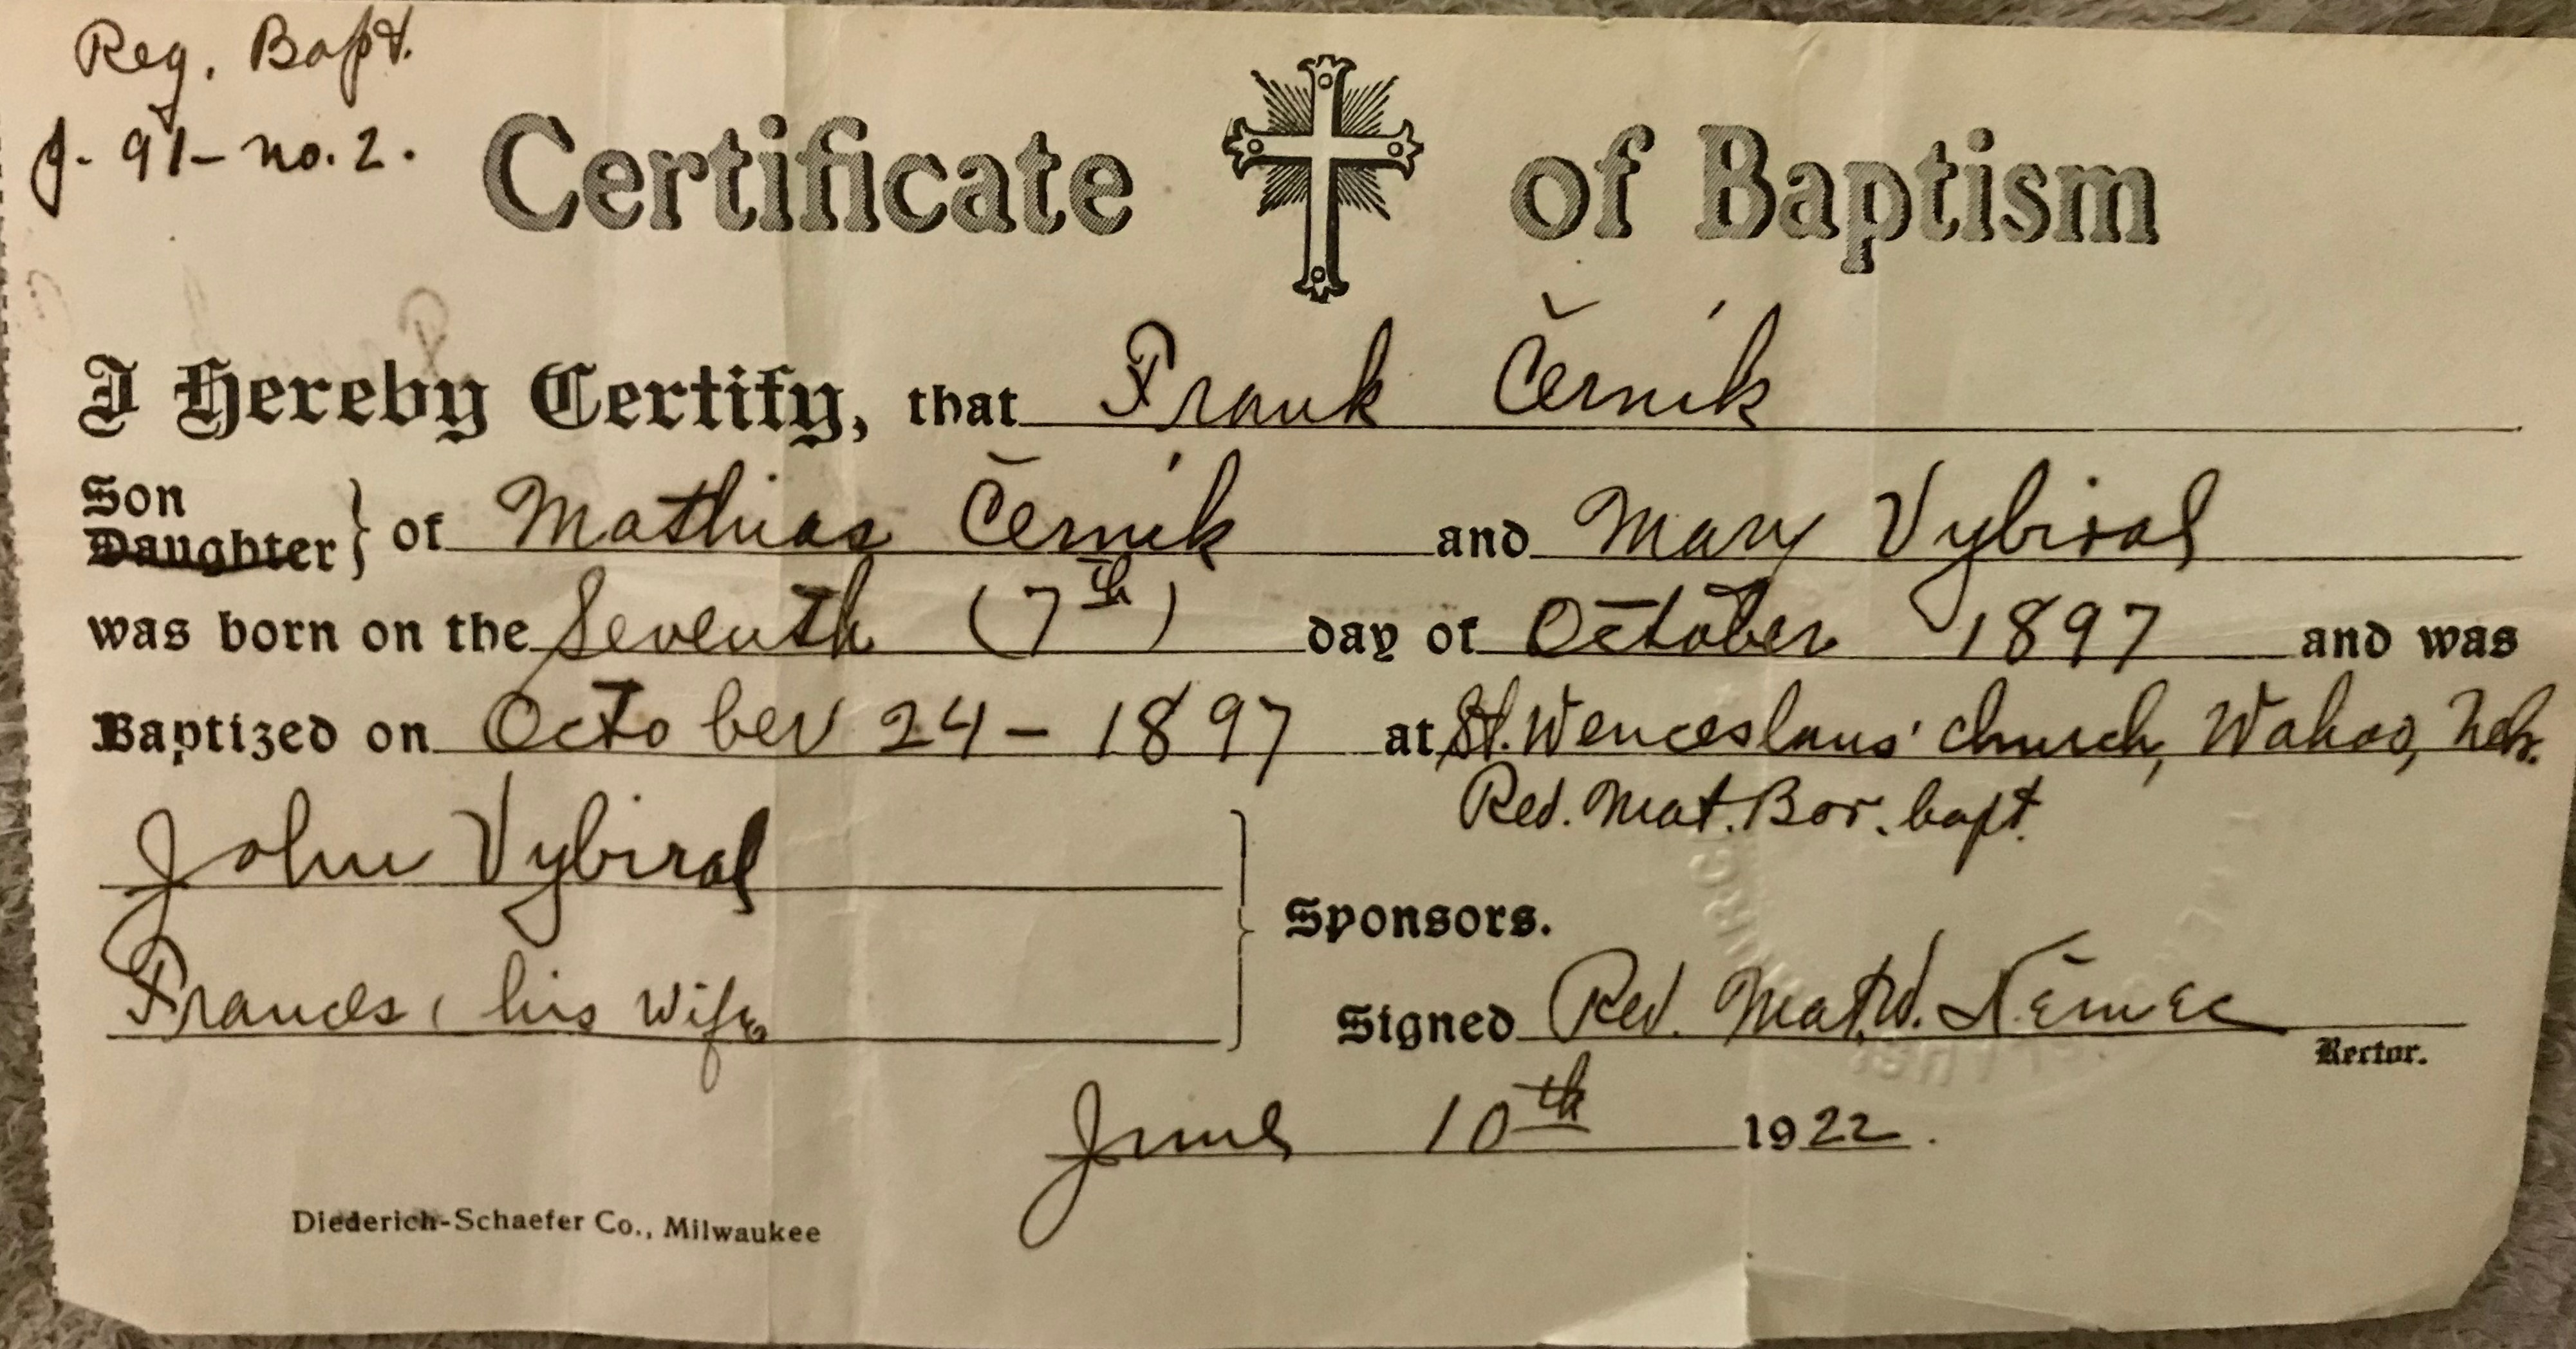 Reg. Bapt.
p. 91 - no. 2.
Certificate of Baptism
I Hereby Certify, that Frank Černík
Son
Daughter } of Mathias Černík and Mary Vybiral
was born on the Seventh (7th) day of October 1897 and was
Baptized on October 24 - 1897 at St. Wenceslaus' church, Wahoo, Neb.
Rev. Mat. Bor. bapt.
John Vybiral
Sponsors.
Frances, his wife
Signed Rev. Mat. Němec
Rector.
June 10th 1922.
Diederich-Schaefer Co., Milwaukee